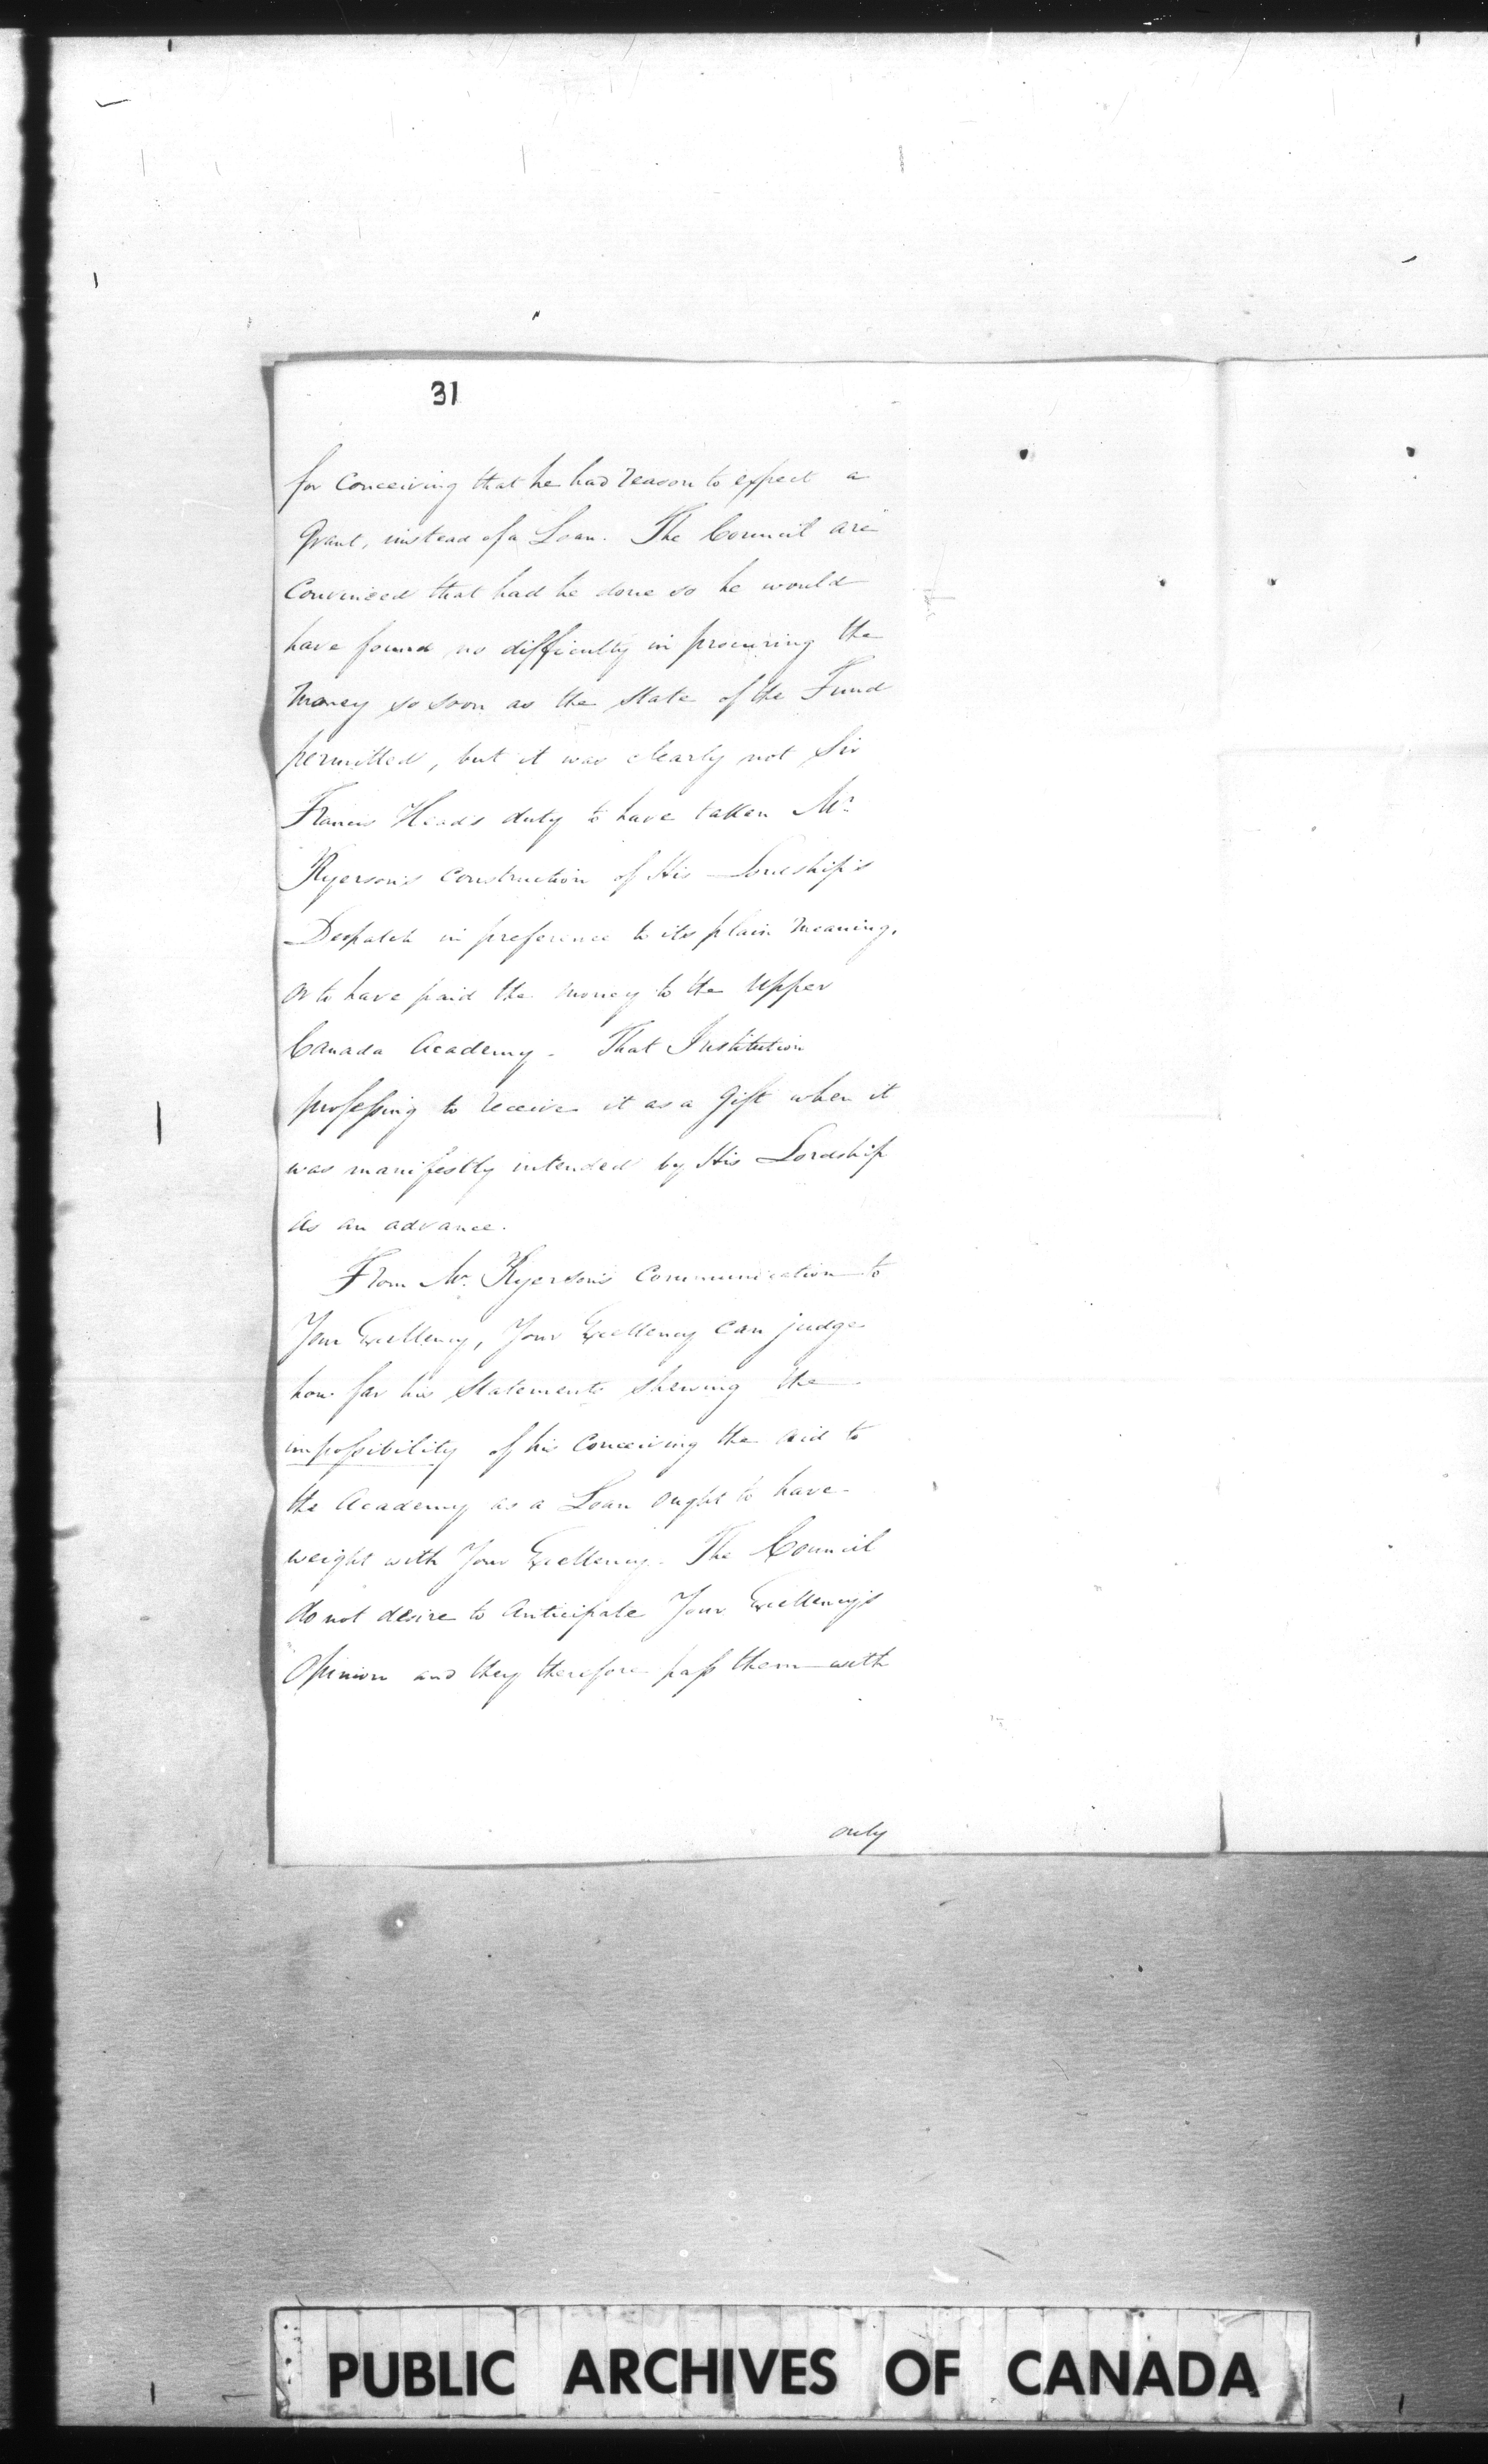 31
for Conceiving that he had reason to expect a
Grant, instead of a Loan. The Council are
Convinced that had he done so he would
have found no difficulty in procuring the
Money so soon as the State of the Fund
permitted, but it was clearly not Sir
Francis Head's duty to have taken Mr.
Ryerson's Construction of His Lordship's
Despatch in preference to its plain Meaning,
or to have paid the money to the Upper
Canada Academy. That Institution
professing to receive it as a Gift when it
was manifestly intended by His Lordship
as an advance.
From Mr. Ryerson's Communication to
Your Excellency, Your Excellency can judge
how far his Statements shewing the
impossibility of his Conceiving the aid to
the Academy as a Loan ought to have
weight with Your Excellency. The Council
do not desire to Anticipate Your Excellency's
Opinion and they therefore pass them with
only
PUBLIC ARCHIVES OF CANADA